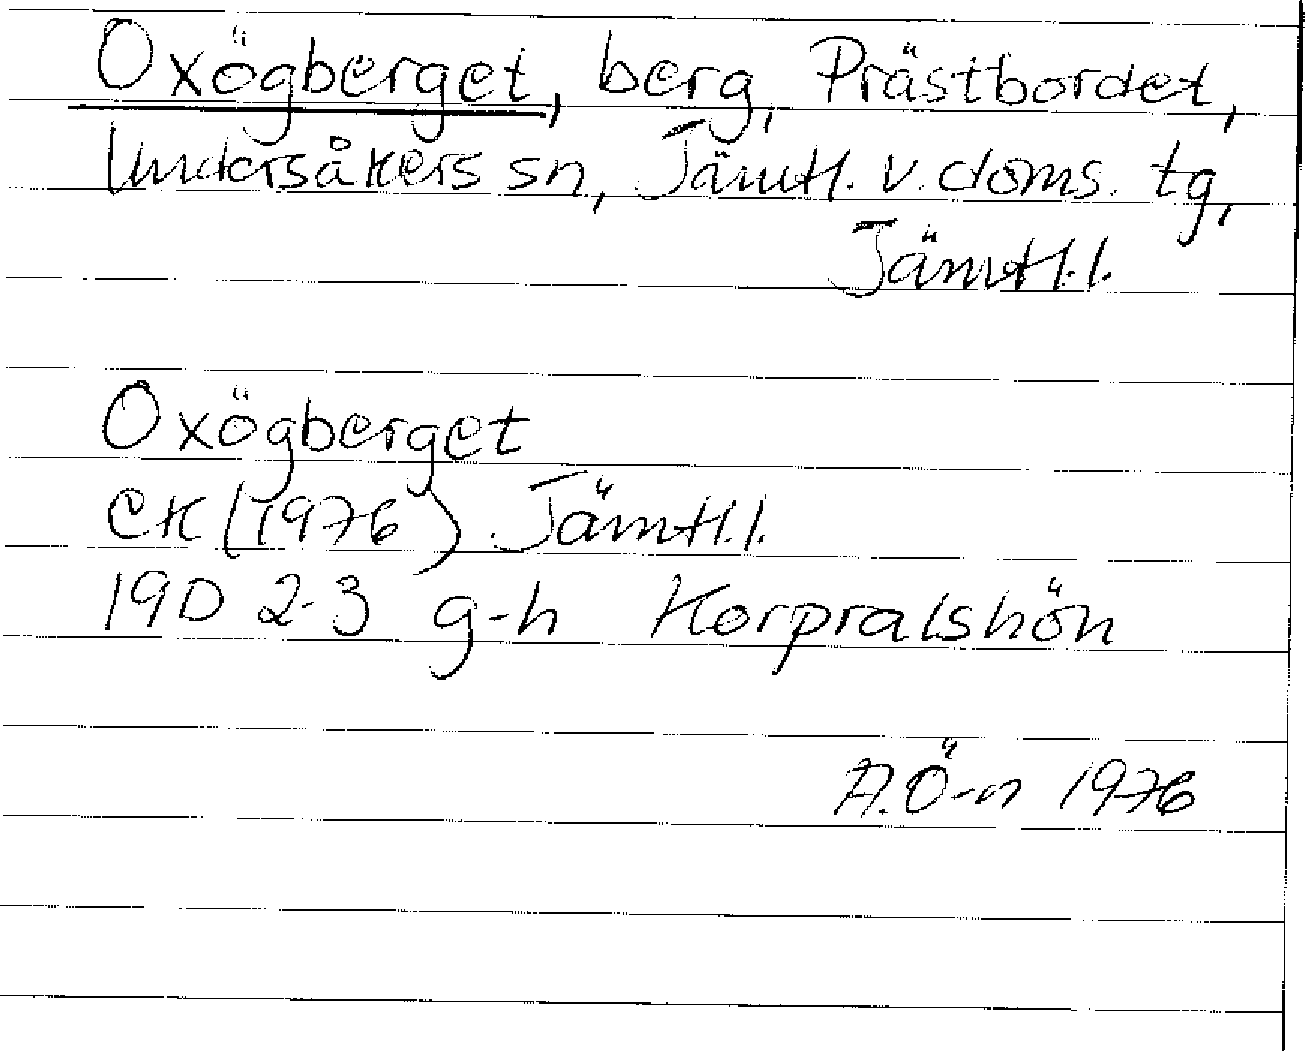 Oxögberget, berg, Prästbordet,
Undersåkers sn, Jämtl. v. doms. tg,
Jämtl. l.
Oxögberget
EK (1976) Jämtl. l.
19D 2-3 g-h Korpralshön
A.Ö-n 1976